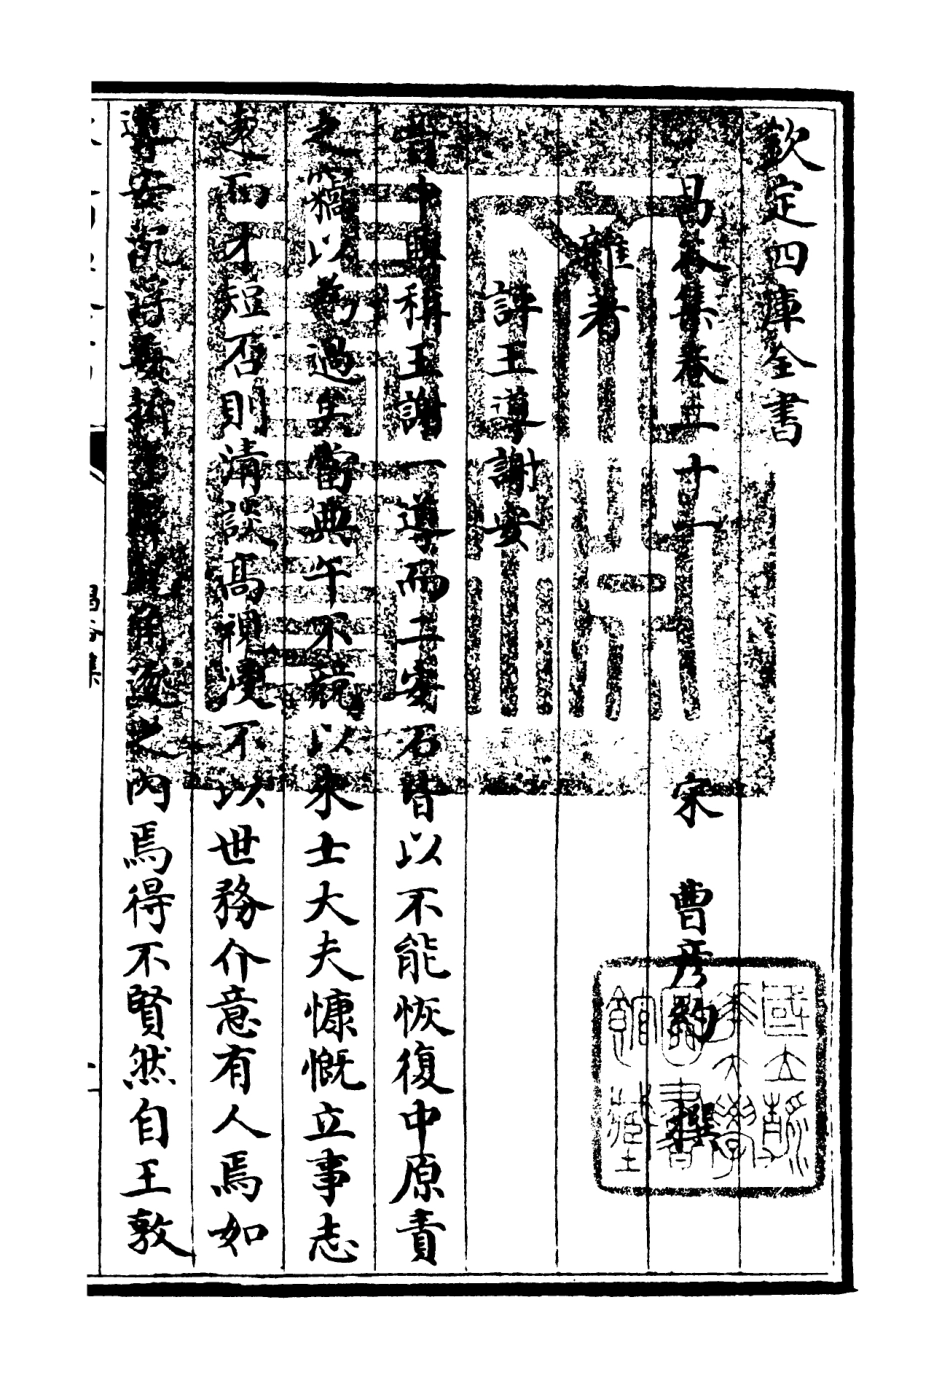 欽定四庫全書
昌谷集卷二十一
宋 曹彥約 撰
雜著
評王導謝安
昔中興稱王謝一導而二安石皆以不能恢復中原責
之竊以為過矣當典午不競以來士大夫慷慨立事志
遠而才短否則清談高視漫不以世務介意有人焉如
導安
之內焉得不賢然自王敦
昌谷集
國立清華大學圖書館藏